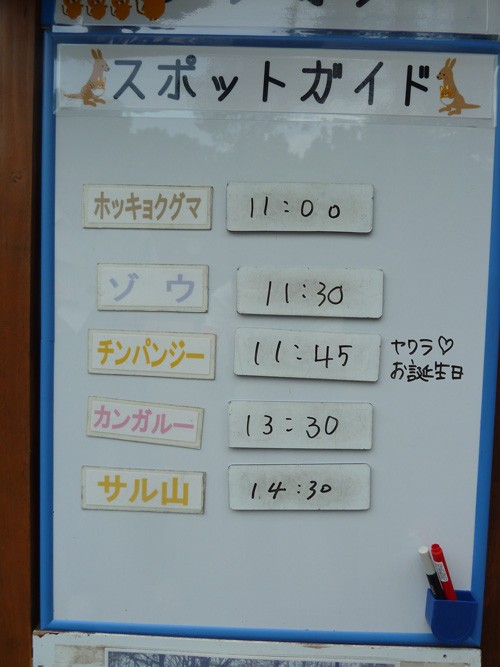 スポットガイド
ホッキョクグマ 11:00
ゾウ 11:30
チンパンジー 11:45 ヤワラ♡
お誕生日
カンガルー 13:30
サル山 14:30